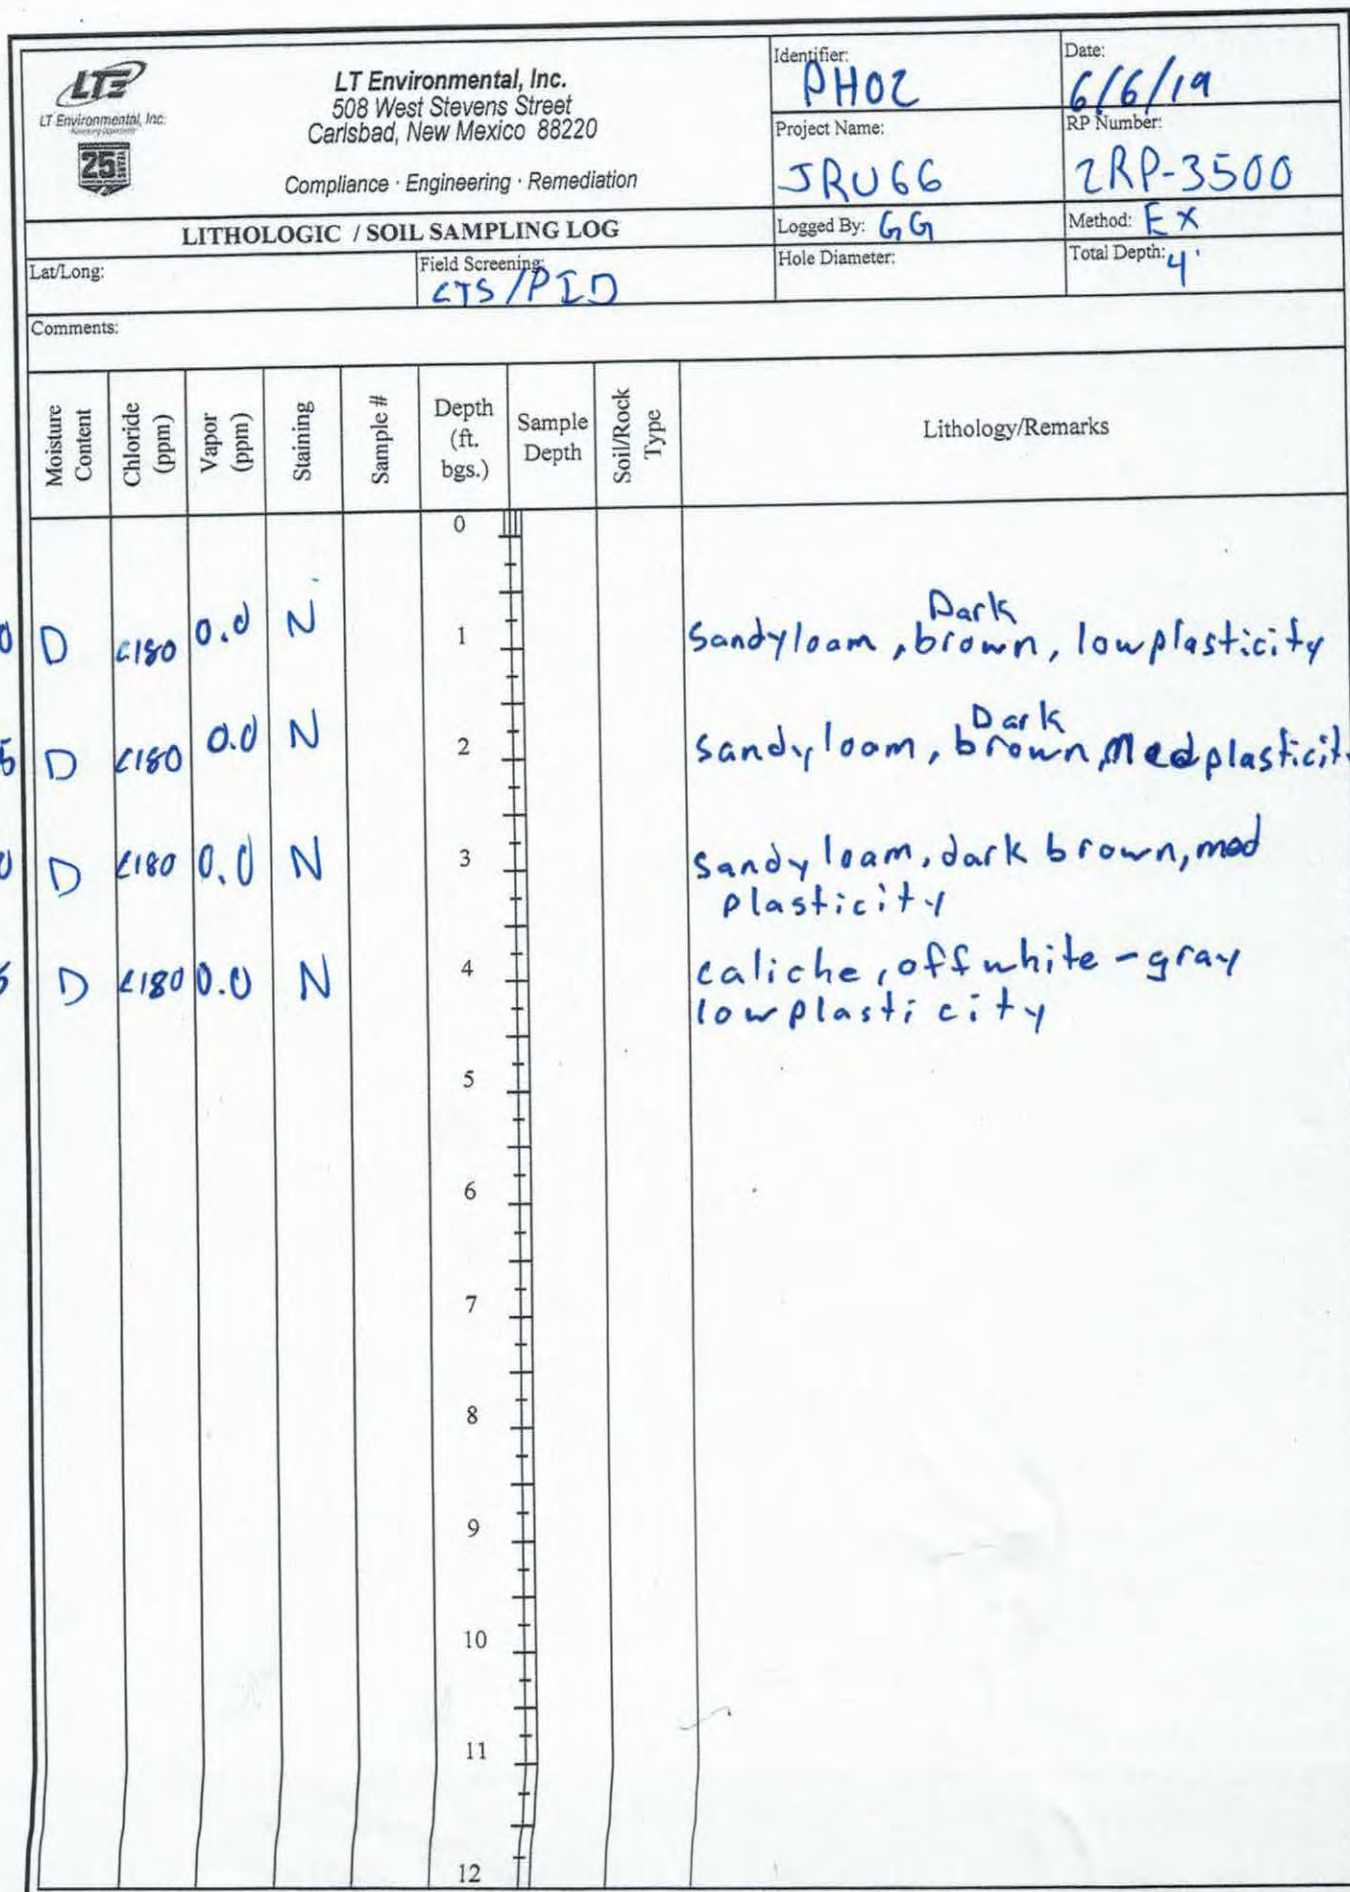 LTE
LT Environmental, Inc.
25 YEARS
LT Environmental, Inc.
508 West Stevens Street
Carlsbad, New Mexico 88220
Compliance · Engineering · Remediation
Identifier: PH02
Date: 6/6/19
Project Name: JRU66
RP Number: 2RP-3500
LITHOLOGIC / SOIL SAMPLING LOG
Logged By: GG
Method: EX
Lat/Long:
Field Screening: CTS/PID
Hole Diameter:
Total Depth: 4'
Comments:
Moisture Content
Chloride (ppm)
Vapor (ppm)
Staining
Sample #
Depth (ft. bgs.)
Sample Depth
Soil/Rock Type
Lithology/Remarks
0
D <180 0.0 N 1 Sandy loam, Dark brown, low plasticity
D <180 0.0 N 2 Sandy loam, Dark brown, Med plasticit
D <180 0.0 N 3 Sandy loam, dark brown, med
plasticity
D <180 0.0 N 4 caliche, off white - gray
low plasticity
5
6
7
8
9
10
11
12